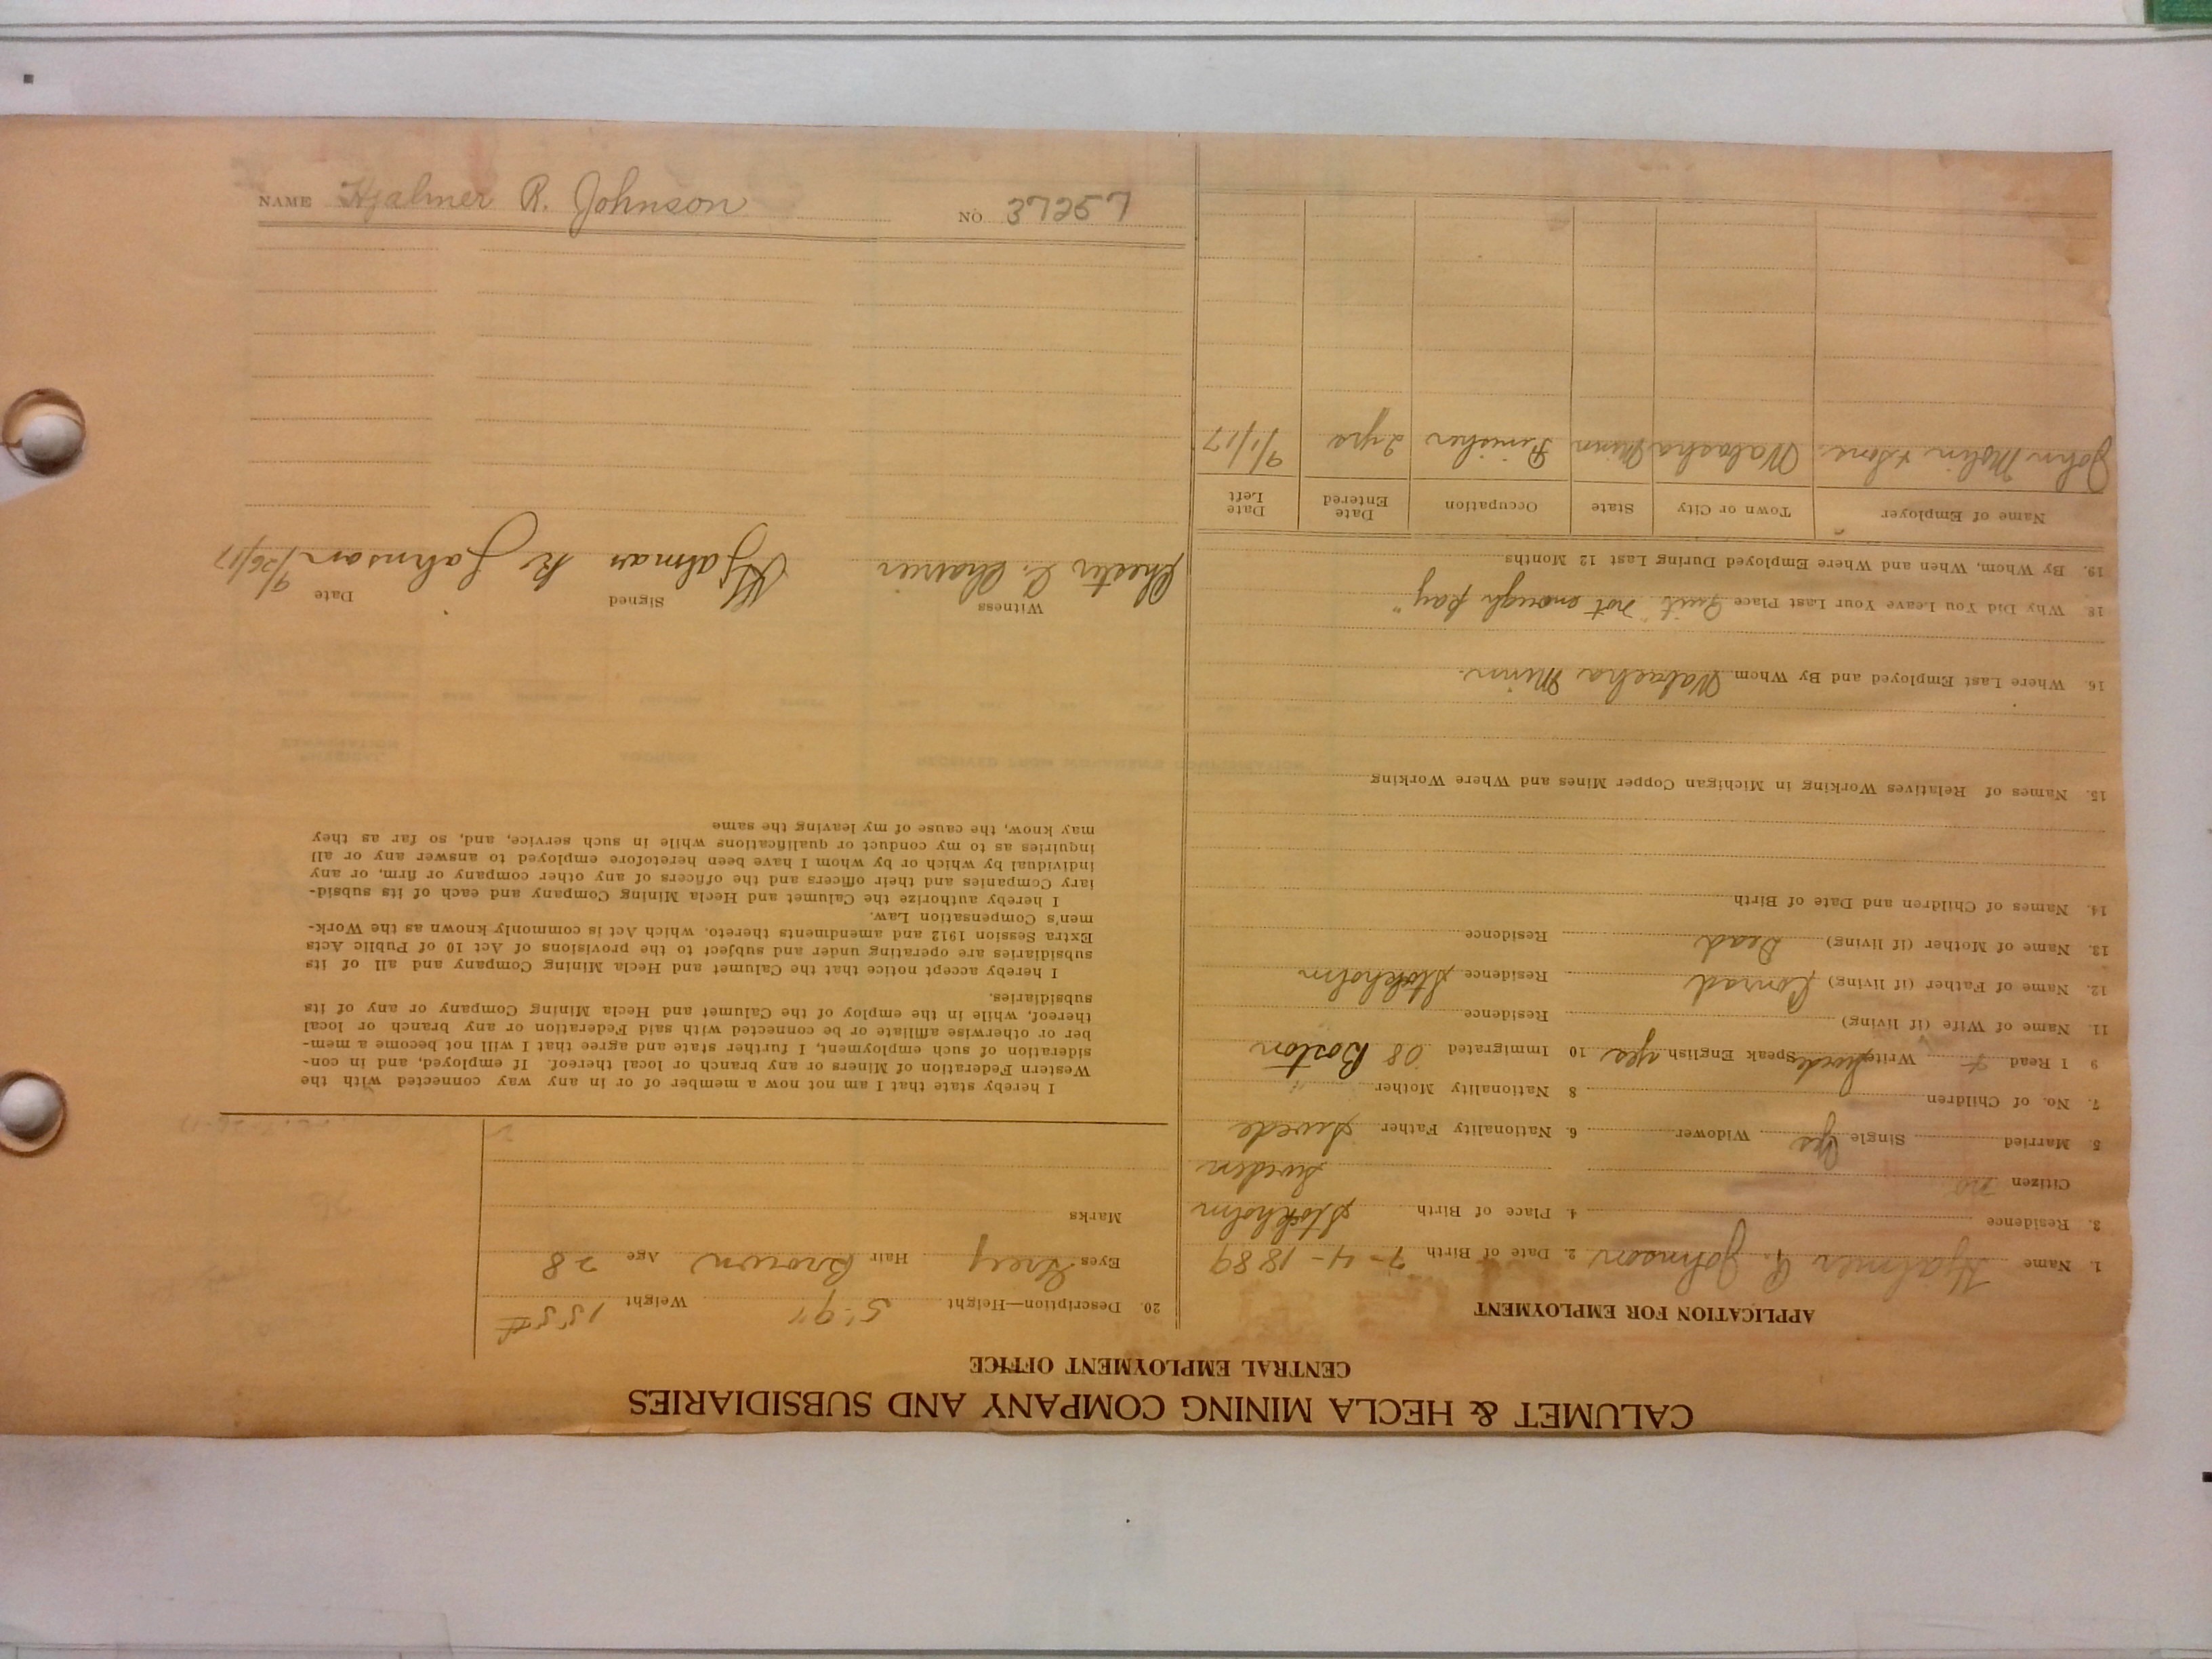 CALUMET & HECLA MINING COMPANY AND SUBSIDIARIES
CENTRAL EMPLOYMENT OFFICE
APPLICATION FOR EMPLOYMENT
1. Name Hjalmer R. Johnson 2. Date of Birth 7-4-1889
3. Residence 4. Place of Birth Stokholm
Citizen no Sweden
5 Married Single Yes Widower 6. Nationality Father Swede
7. No. of Children 8 Nationality Mother "
9 I Read + Write Swede Speak English yes 10 Immigrated 08 Boston
11. Name of Wife (if living) Residence
12. Name of Father (if living) Conrad Residence Stokholm
13. Name of Mother (if living) Dead Residence
14. Names of Children and Date of Birth
15. Names of Relatives Working in Michigan Copper Mines and Where Working
16. Where Last Employed and By Whom Wabasha Minn.
18. Why Did You Leave Your Last Place Quit "not enough pay"
19. By Whom, When and Where Employed During Last 12 Months
Name of Employer Town or City State Occupation Date Entered Date Left
John Molin & Sons Wabasha Minn Finisher 2 yrs 9/1/17
20. Description—Height 5'-9" Weight 155#
Eyes Grey Hair Brown Age 28
Marks
I hereby state that I am not now a member of or in any way connected with the
Western Federation of Miners or any branch or local thereof. If employed, and in con-
sideration of such employment, I further state and agree that I will not become a mem-
ber or otherwise affiliate or be connected with said Federation or any branch or local
thereof, while in the employ of the Calumet and Hecla Mining Company or any of its
subsidiaries.
I hereby accept notice that the Calumet and Hecla Mining Company and all of its
subsidiaries are operating under and subject to the provisions of Act 10 of Public Acts
Extra Session 1912 and amendments thereto, which Act is commonly known as the Work-
men's Compensation Law.
I hereby authorize the Calumet and Hecla Mining Company and each of its subsid-
iary Companies and their officers and the officers of any other company or firm, or any
individual by which or by whom I have been heretofore employed to answer any or all
inquiries as to my conduct or qualifications while in such service, and, so far as they
may know, the cause of my leaving the same
Witness Signed Date
Chester C. Hjalmar R Johnson 9/26/17
NAME Hjalmer R. Johnson NO 37257